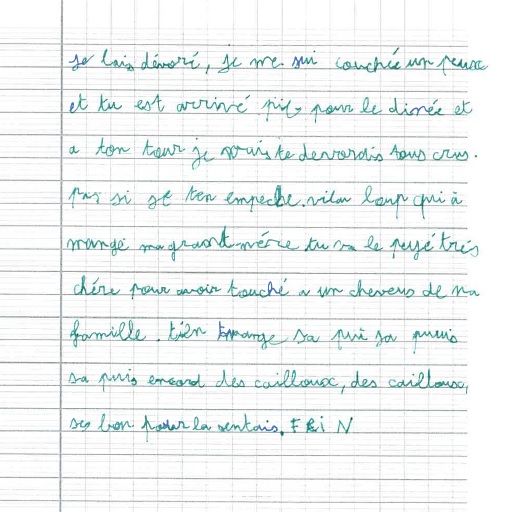 je lais dévoré, je me sui couchée un peux
et tu est arrivé pil pour le dinée et
a ton tour je vais te devordis tous crus.
pas si je ten empeche. vilan loup qui à
mangé ma grand mére tu va le peyé trés
chére pour avoir touché a un cheveus de ma
famille. tien mange sa pui sa puis
sa puis encord des cailloux, des cailloux,
ses bon pour la sentais. FIN